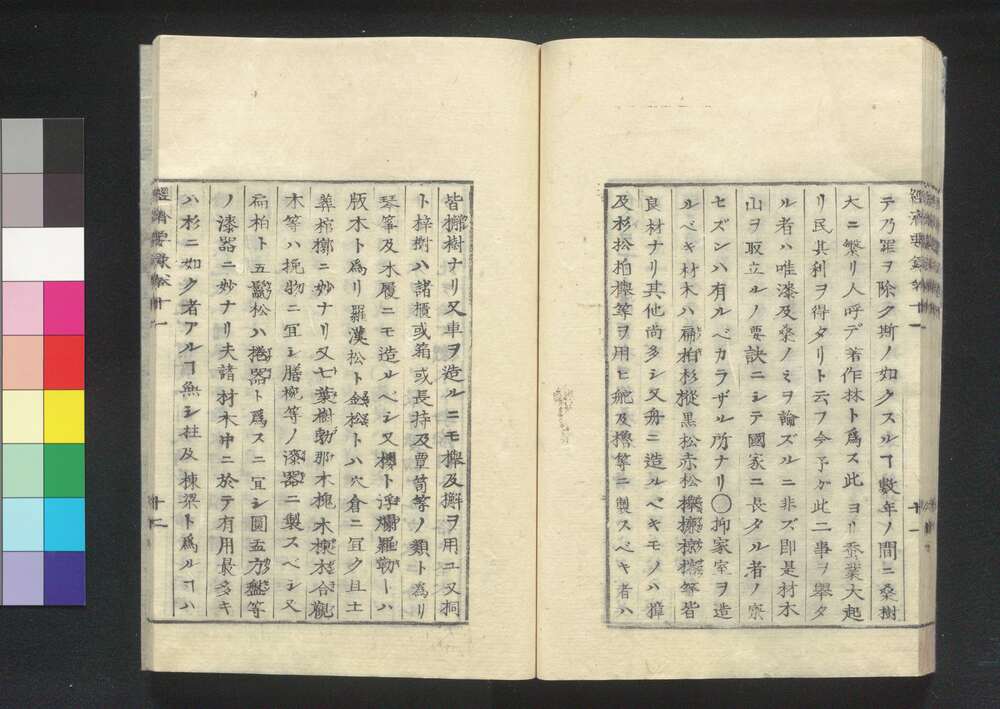 テ乃翠ヲ除ク斯ノ如クスルヿ数年ノ間ニ桑樹
大ニ繁リ人呼デ著作林ト為ス此ヨリ蚕業大起
リ民其利ヲ得タリト云フ今予ガ此二事ヲ挙タ
ル者ハ唯漆及桑ノミヲ論ズルニ非ズ即是材木
山ヲ取立ルノ要訣ニシテ國家ニ長タル者ノ察
セズンハ有ルベカラザル所ナリ〇抑家室ヲ造
ルベキ材木ハ扁柏杉樅黒松赤松等皆
良材ナリ其他尚多シ又舟ニ造ルベキモノハ樟
及杉松柏欅等ヲ用ヒ舵及櫓等ニ製スベキ者ハ
經濟要録巻十一
十一
皆樹ナリ又車ヲ造ルニモ欅及ヲ用ユ又桐
ト梓樹ハ諸櫃或箱或長持及簞笥等ノ類ト為リ
琴箏及木履ニモ造ルベシ又櫻ト羅勒ーハ
版木ト為リ羅漢松ト金松トハ穴倉ニ宜ク且土
葬棺槨ニ妙ナリ又七葉樹勃那木槐木楝木合歡
木等ハ挽物ニ宜シ膳椀等ノ漆器ニ製スベシ又
扁柏ト五鬣松ハ捲器ト為スニ宜シ圓盂方盤等
ノ漆器ニ妙ナリ夫諸材木中ニ於テ有用最多キ
ハ杉ニ如ク者アルヿ無シ柱及棟梁ト為ルヿハ
經濟要録巻十一
十二